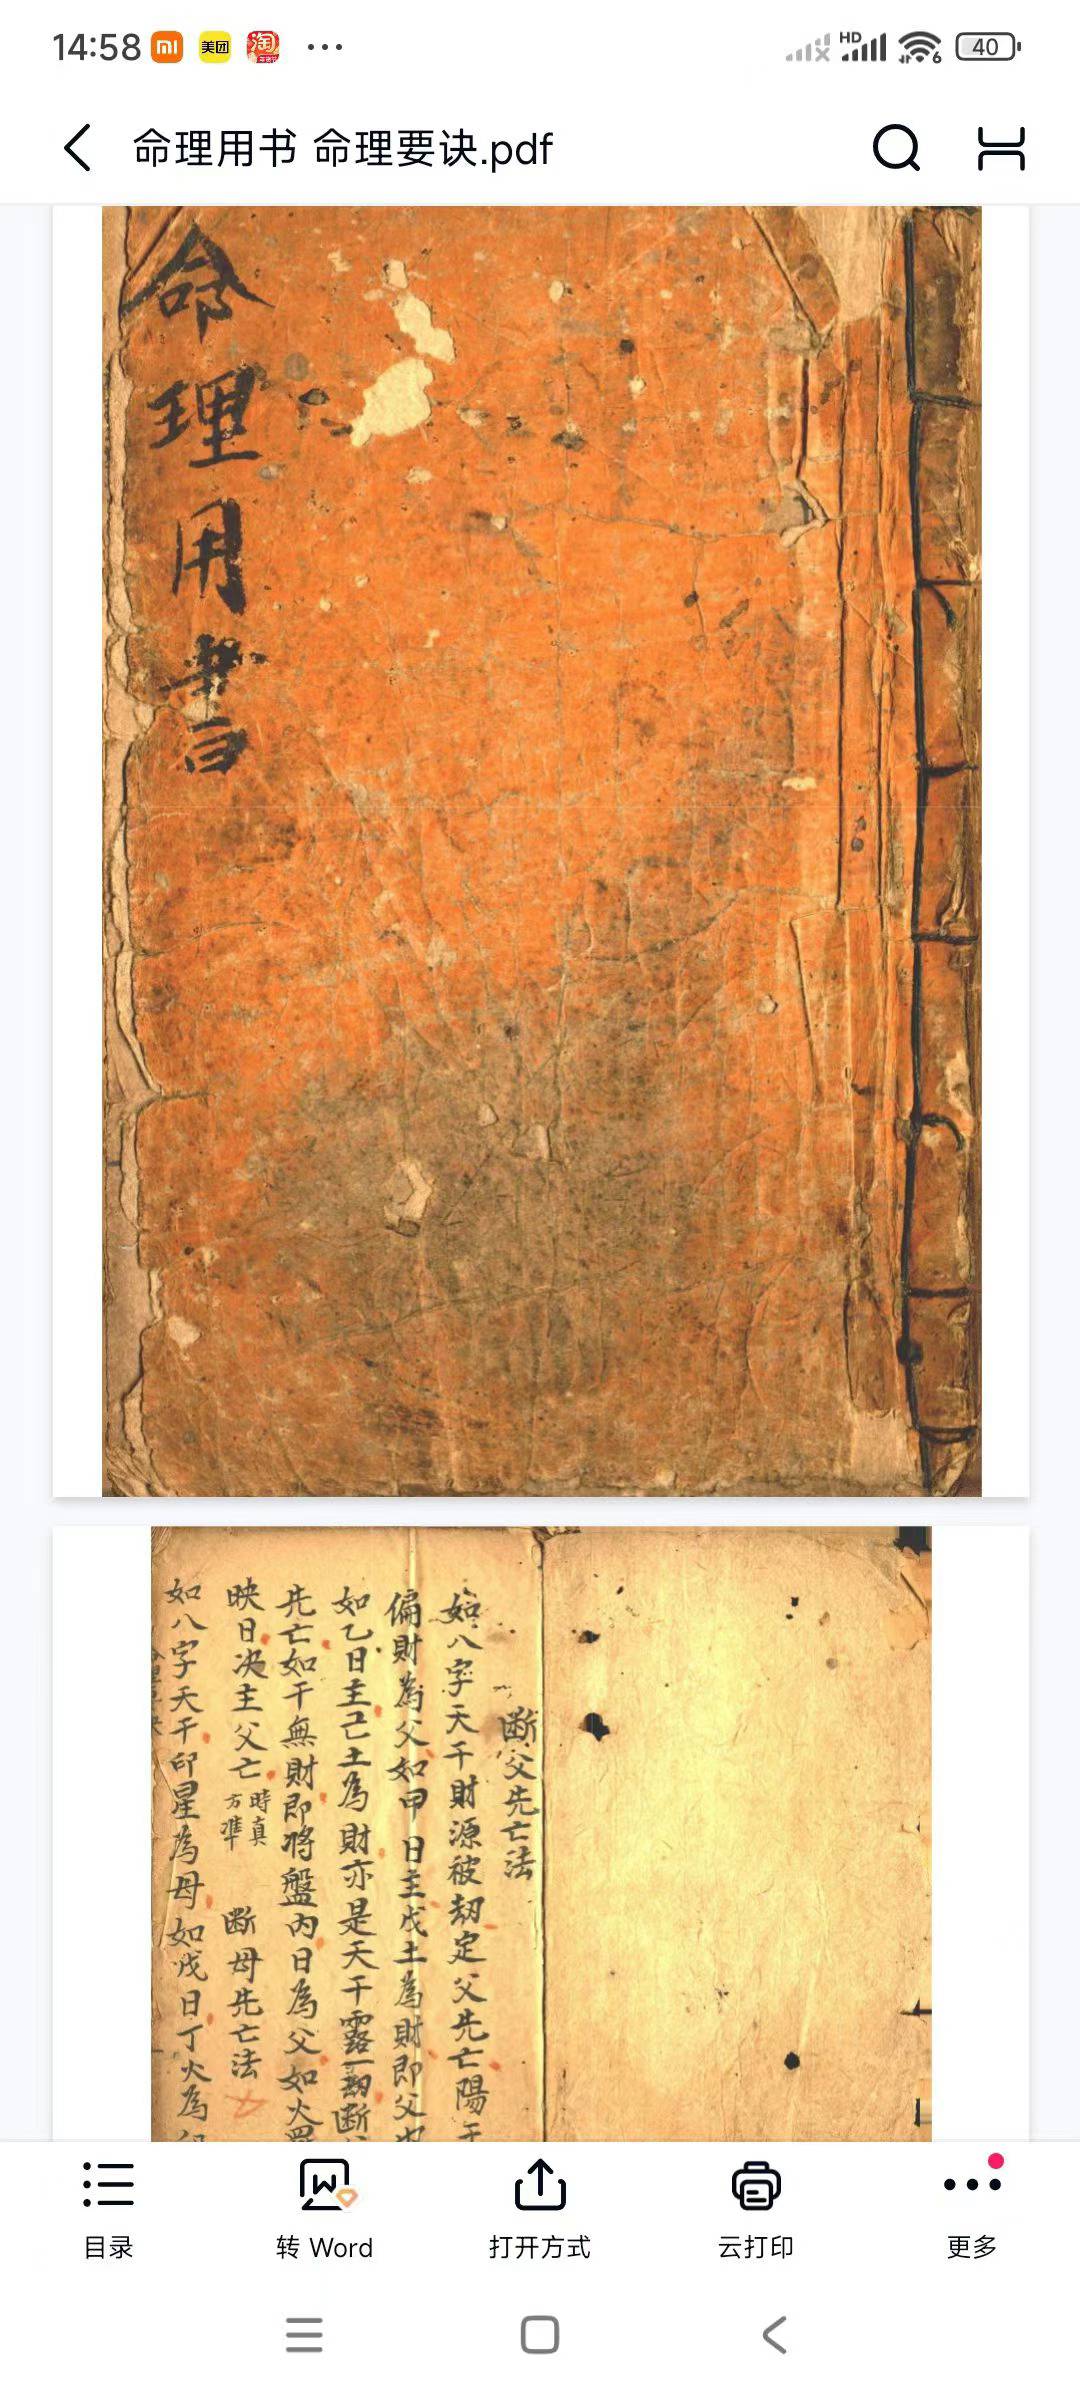 14:58
美团
淘
HD
6
40
命理用书 命理要诀.pdf
命理用書
断父先亡法
如八字天干財源被刼定父先亡陽干
偏財為父如甲日主戊土為財即父也
如乙日主己土為財亦是天干露一刼断
先亡如干無財即将盤内日為父如火羅
映日决主父亡時真方準 断母先亡法
如八字天干印星為母如戊日丁火為印
目录
转 Word
打开方式
云打印
更多